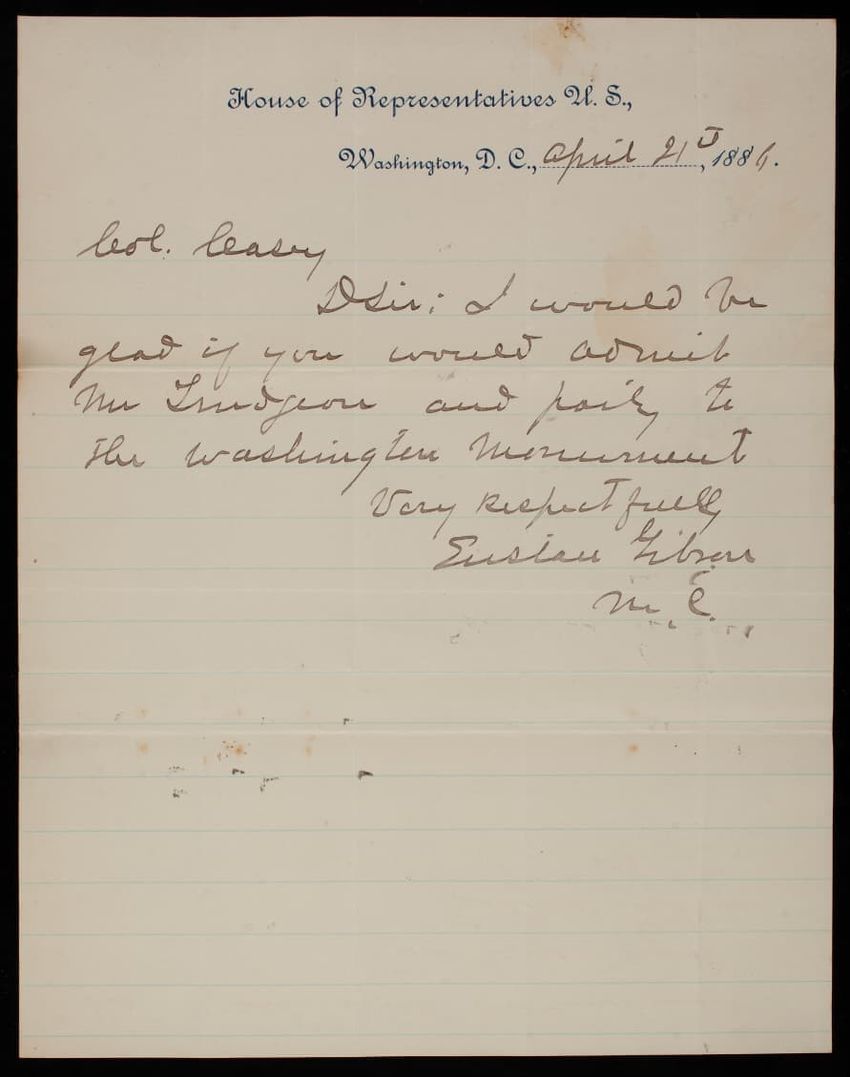 House of Representatives U. S.,
Washington, D. C., April 21st, 1886.
Col. Casey
DSir; I would be
glad if you would admit
Mr and party to
the Washington Monument
Very respectfully
Eustace Gibson
M. C.